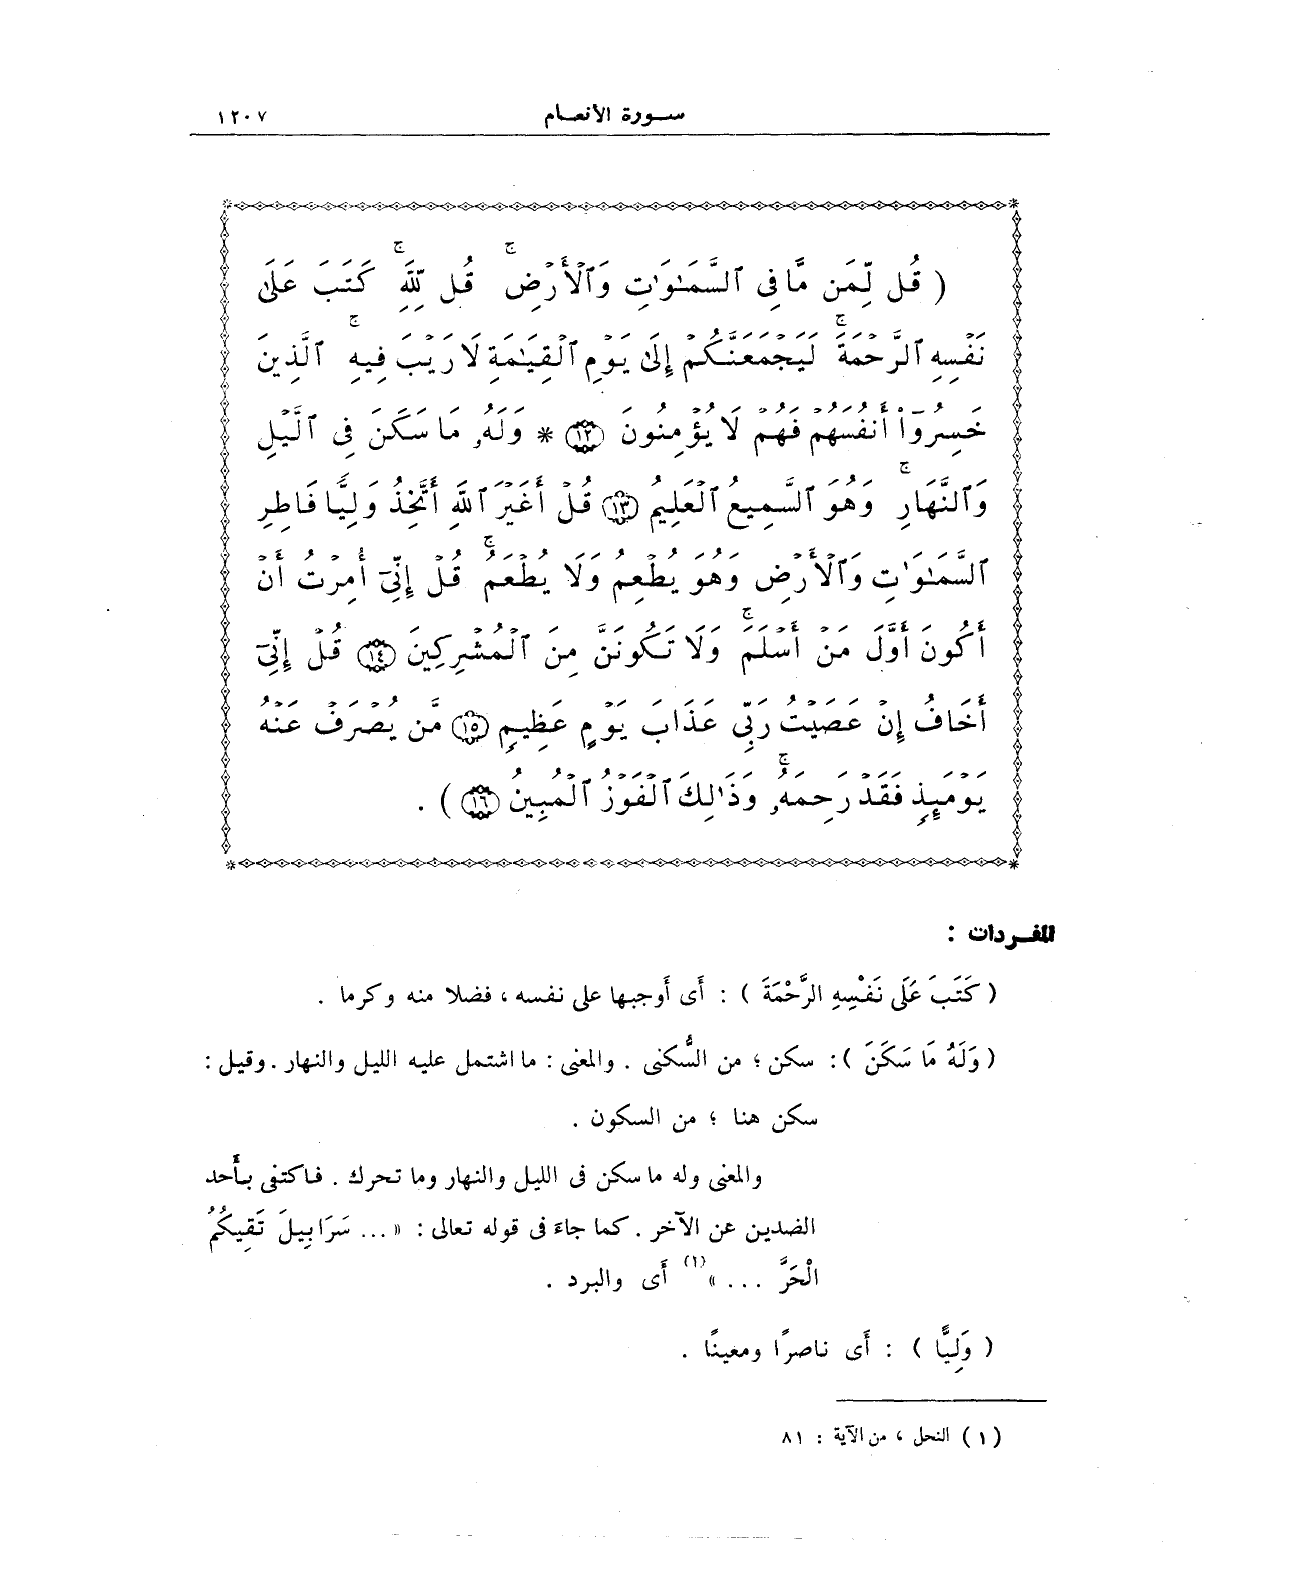 سورة الأنعام ١٢٠٧
( قُل لِّمَن مَّا فِى ٱلسَّمَٰوَٰتِ وَٱلْأَرْضِ ۚ قُل لِّلَّهِ ۚ كَتَبَ عَلَىٰ
نَفْسِهِ ٱلرَّحْمَةَ ۚ لَيَجْمَعَنَّكُمْ إِلَىٰ يَوْمِ ٱلْقِيَٰمَةِ لَا رَيْبَ فِيهِ ۚ ٱلَّذِينَ
خَسِرُوٓا۟ أَنفُسَهُمْ فَهُمْ لَا يُؤْمِنُونَ ١٢ * وَلَهُۥ مَا سَكَنَ فِى ٱلَّيْلِ
وَٱلنَّهَارِ ۚ وَهُوَ ٱلسَّمِيعُ ٱلْعَلِيمُ ١٣ قُلْ أَغَيْرَ ٱللَّهِ أَتَّخِذُ وَلِيًّا فَاطِرِ
ٱلسَّمَٰوَٰتِ وَٱلْأَرْضِ وَهُوَ يُطْعِمُ وَلَا يُطْعَمُ ۚ قُلْ إِنِّىٓ أُمِرْتُ أَنْ
أَكُونَ أَوَّلَ مَنْ أَسْلَمَ ۚ وَلَا تَكُونَنَّ مِنَ ٱلْمُشْرِكِينَ ١٤ قُلْ إِنِّىٓ
أَخَافُ إِنْ عَصَيْتُ رَبِّى عَذَابَ يَوْمٍ عَظِيمٍ ١٥ مَّن يُصْرَفْ عَنْهُ
يَوْمَئِذٍ فَقَدْ رَحِمَهُۥ ۚ وَذَٰلِكَ ٱلْفَوْزُ ٱلْمُبِينُ ١٦ ) .
المفردات :
( كَتَبَ عَلَى نَفْسِهِ الرَّحْمَةَ ) : أَى أَوجبها على نفسه ، فضلا منه وكرما .
( وَلَهُ مَا سَكَنَ ) : سكن ؛ من السُّكنى . والمعنى : ما اشتمل عليه الليل والنهار . وقيل :
سكن هنا ؛ من السكون .
والمعنى وله ما سكن فى الليل والنهار وما تحرك . فاكتفى بأَحد
الضدين عن الآخر . كما جاءَ فى قوله تعالى : « ... سَرَابِيلَ تَقِيكُمُ
الْحَرَّ ... » (١) أَى والبرد .
( وَلِيًّا ) : أَى ناصرًا ومعينًا .
( ١ ) النحل ، من الآية : ٨١